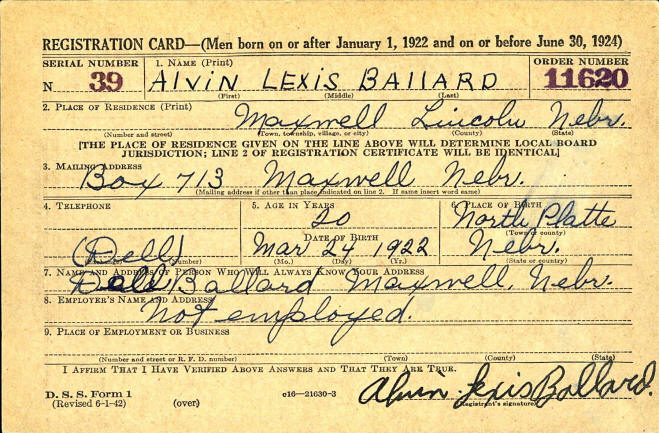 REGISTRATION CARD—(Men born on or after January 1, 1922 and on or before June 30, 1924)
SERIAL NUMBER 1. NAME (Print) ORDER NUMBER
N 39 Alvin Lexis Ballard 11620
(First) (Middle) (Last)
2. PLACE OF RESIDENCE (Print)
Maxwell Lincoln Nebr.
(Number and street) (Town, township, village, or city) (County) (State)
[THE PLACE OF RESIDENCE GIVEN ON THE LINE ABOVE WILL DETERMINE LOCAL BOARD
JURISDICTION; LINE 2 OF REGISTRATION CERTIFICATE WILL BE IDENTICAL]
3. MAILING ADDRESS
Box 713 Maxwell Nebr.
(Mailing address if other than place indicated on line 2. If same insert word same)
4. TELEPHONE 5. AGE IN YEARS 6. PLACE OF BIRTH
20 North Platte
DATE OF BIRTH (Town or county)
(Dell) Mar 24 1922 Nebr.
(Number) (Mo.) (Day) (Yr.) (State or country)
7. NAME AND ADDRESS OF PERSON WHO WILL ALWAYS KNOW YOUR ADDRESS
Ballard Maxwell, Nebr.
8. EMPLOYER'S NAME AND ADDRESS
Not employed.
9. PLACE OF EMPLOYMENT OR BUSINESS
(Number and street or R. F. D. number) (Town) (County) (State)
I AFFIRM THAT I HAVE VERIFIED ABOVE ANSWERS AND THAT THEY ARE TRUE.
D. S. S. Form 1 c16—21630-3 Alvin Lexis Ballard.
(Revised 6-1-42) (over) (Registrant's signature)